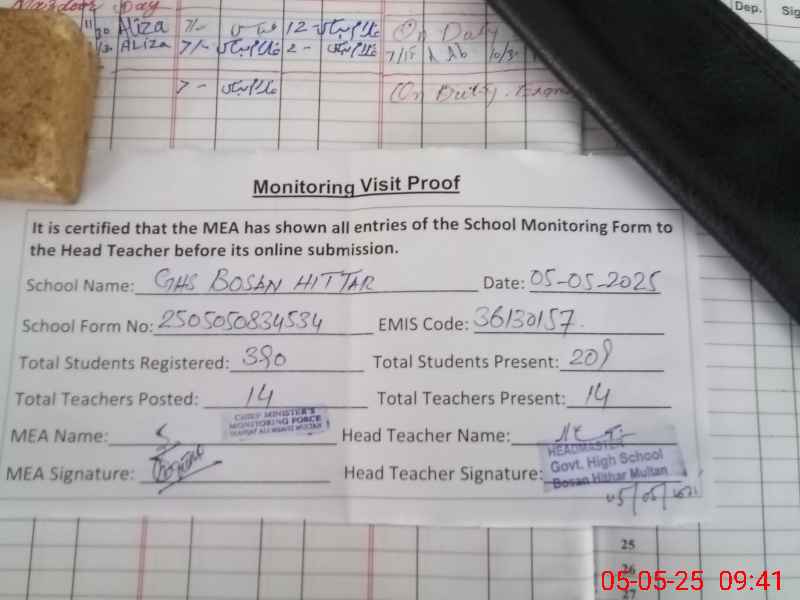 Dep.
Aliza 7/- 12-
ALIZA 7/- 2-
On Duty
7 -
Monitoring Visit Proof
It is certified that the MEA has shown all entries of the School Monitoring Form to
the Head Teacher before its online submission.
School Name: GHS BOSAN HITTAR Date: 05-05-2025
School Form No: 2505050834534 EMIS Code: 36130157.
Total Students Registered: 390 Total Students Present: 209
Total Teachers Posted: 14 Total Teachers Present: 14
CHIEF MINISTER'S
MONITORING FORCE
MEA Name: Head Teacher Name:
HEADMASTER
Govt. High School
Bosan Hithar Multan
MEA Signature: Head Teacher Signature:
05/05/2025
25
26
27
05-05-25 09:41